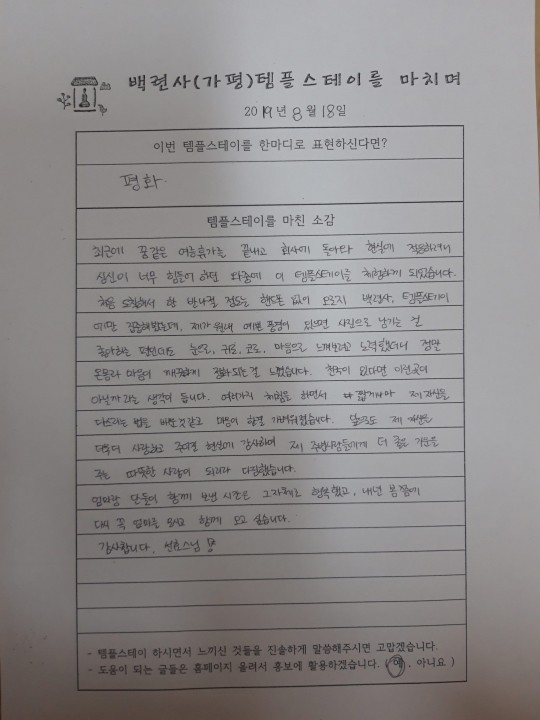 백련사(가평)템플스테이를 마치며
2019년 8월 18일
이번 템플스테이를 한마디로 표현하신다면?
평화.
템플스테이를 마친 소감
최근에 꿈같은 여름휴가를 끝내고 회사에 돌아와 현실에 적응하려니
심신이 너무 힘들어 하던 와중에 이 템플스테이를 체험하게 되었습니다.
처음 도착해서 한 반나절 정도는 핸드폰 없이 오로지 백련사, 템플스테이
에만 집중해봤는데, 제가 원래 예쁜 풍경이 있으면 사진으로 남기는 걸
좋아하는 편인데도 눈으로, 귀로, 코로, 마음으로 느껴보려고 노력했더니 정말
온몸과 마음이 깨끗하게 정화되는걸 느꼈습니다. 천국이 있다면 이런곳이
아닐까라는 생각이 듭니다. 여러가지 체험을 하면서 짧게나마 제 자신을
다스리는 법을 배운것 같고 마음이 한결 가벼워졌습니다. 앞으로도 제 자신을
더욱더 사랑하고 주어진 현실에 감사하며 제 주변사람들에게 더 좋은 기운을
주는 따뜻한 사람이 되리라 다짐했습니다.
엄마랑 단둘이 함께 보낸 시간은 그자체로 행복했고, 내년 봄쯤에
다시 꼭 엄마를 모시고 함께 오고 싶습니다.
감사합니다. 선효스님
- 템플스테이 하시면서 느끼신 것들을 진솔하게 말씀해주시면 고맙겠습니다.
- 도움이 되는 글들은 홈페이지 올려서 홍보에 활용하겠습니다. ( 예 , 아니요 )